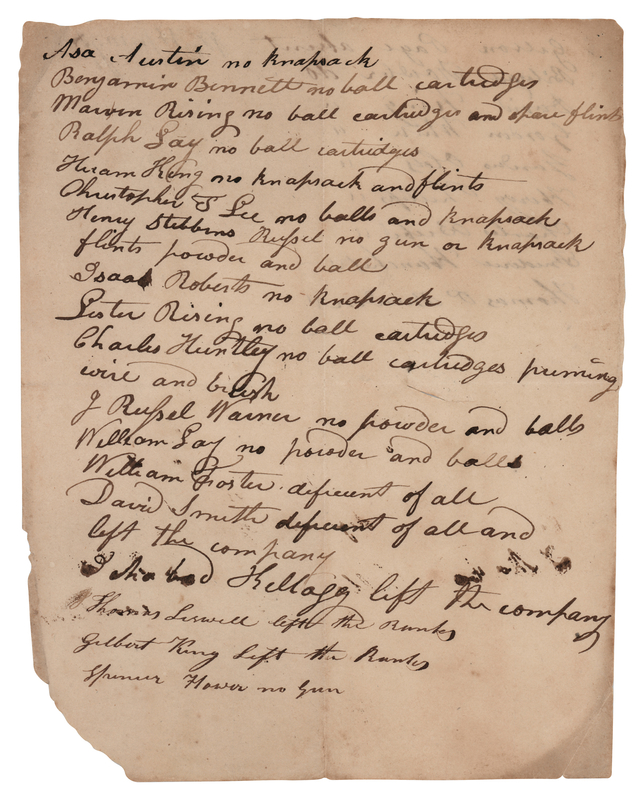 Asa Austin no knapsack
Benjamin Bennett no ball cartridges
Marven Rising no ball cartridges and spare flints
Ralph Lay no ball cartridges
Hiram King no knapsack and flints
Christopher T Lee no balls and knapsack
Henry Stebbins Russel no gun or knapsack
flints powder and ball
Isaac Roberts no knapsack
Lester Rising no ball cartridges
Charles Huntley no ball cartridges priming
wire and brush
J Russel Warner no powder and balls
William Lay no powder and balls
William Foster deficient of all
David Smith deficient of all and
left the company
Kellogg left the company
Thomas left the Ranks
Gilbert King Left the Ranks
Spencer Flower no Gun